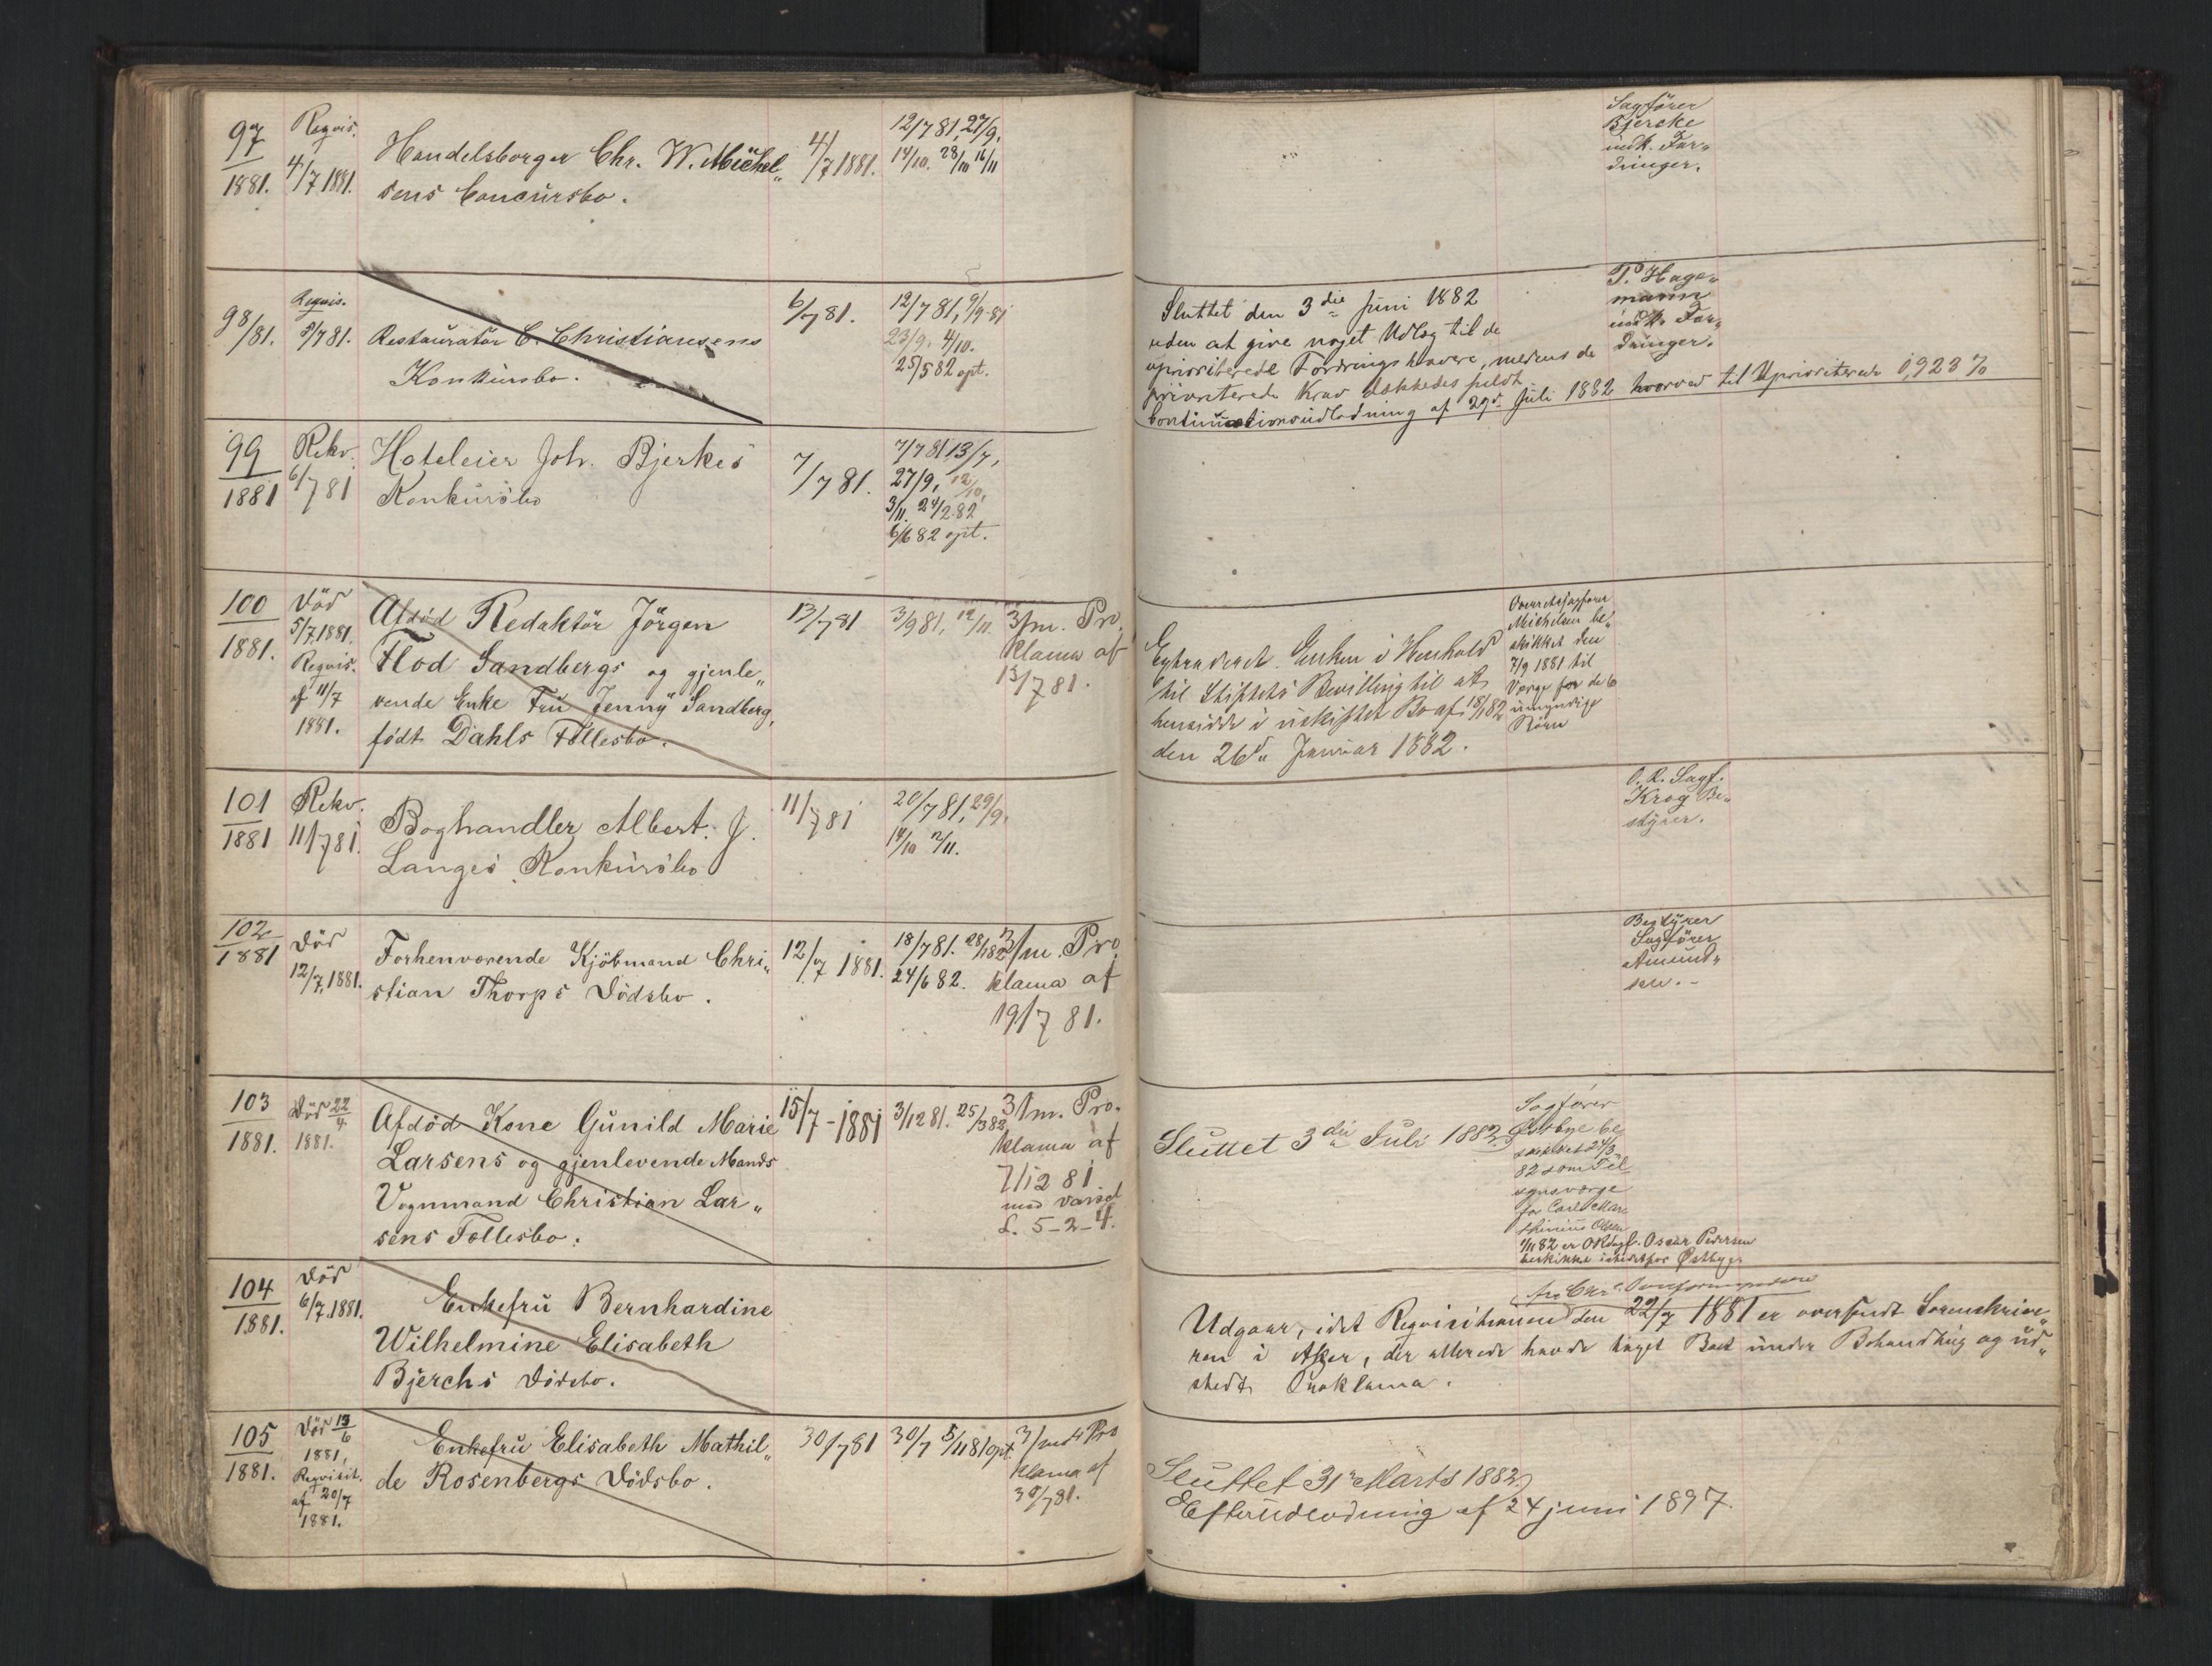 97
1881.
Reqvis.
4/7 1881.
Handelsborger Chr. W. Michel„
sens Concursbo.
4/7 1881.
12/7 81, 27/9,
14/10. 28/10 16/11
Sagfører
Bjercke
indk. For„
dringer.
98/81.
Reqvis.
5/7 81.
Restauratør C. Christiansens
Konkursbo.
6/7 81.
12/7 81, 9/9 81
23/9. 4/10.
25/5 82 opt.
Sluttet den 3die Juni 1882
uden at give noget Udlæg til de
uprioriterede Fordringshavere, medens de
prioriterede Krav dækkedes fuldt
Continuationsudlodning af 29d. Juli 1882 hvorved til Uprioriterede 0,923 %
T. Hage„
mann
indk. For„
dringer.
99
1881
Rekv.
6/7 81
Hoteleier Joh. Bjerkes
Konkursbo
7/7 81.
7/7 81 13/7,
27/9, 12/10,
3/11. 24/2 82
6/6 82 opt.
100
1881.
Död
5/7 1881.
Reqvis.
af 11/7
1881.
Afdöd Redaktör Jörgen
Flod Sandbergs og gjenle„
vende Enke Fru Jenny Sandberg,
født Dahls Fællesbo.
13/7 81
3/9 81, 12/11.
3/m. Pro„
klama af
13/7 81.
Extraderet Enken i Henhold
til Stiftets Bevilling til at
hensidde i uskiftet Bo af 18/1 82
den 26d. Januar 1882.
Overretssagfører
Michelsen be„
skikket den
7/9 1881 til
Værge for de 6
umyndige
Börn
101
1881
Rekv.
11/7 81.
Boghandler Albert. J.
Langes Konkursbo
11/7 81
20/7 81, 29/9.
14/10 2/11.
O. R. Sagf.
Krog Be„
styrer.
102
1881
Död
12/7 1881.
Forhenværende Kjöbmand Chri„
stian Thorps Dödsbo.
12/7 1881.
18/7 81. 28/1 82
24/6 82.
3/m. Pro
klama af
19/7 81.
Bestyrer
Sagfører
Amund„
sen. -
103
1881.
Död 22/4
1881.
Afdöd Kone Gunild Marie
Larsens og gjenlevende Mands
Vognmand Christian Lar„
sens Fællesbo.
15/7 - 1881
3/12 81. 25/3 82
3/m. Pro„
klama af
7/12 81
med varsel
L. 5-2-4.
Sluttet 3die Juli 1882
Sagfører
Østbye be„
skikket 24/3
82 som Til„
synsværge
for Carl Mar„
thinius Olsen
1/11 82 er ORSagf. Oscar Pedersen
beskikket istedetfor Østbye
104
1881.
Död
6/7 1881.
Enkefru Bernhardine
Wilhelmine Elisabeth
Bjerchs Dödsbo.
fra Chra. Overformynderi
Udgaar, idet Reqvisitionen den 22/7 1881 er oversendt Sorenskrive„
ren i Aker, der allerede havde taget Boet under Behandling og ud„
stedt Proklama.
105
1881.
Död 13/6
1881,
Reqvisit.
af 20/7
1881.
Enkefru Elisabeth Mathil„
de Rosenbergs Dödsbo.
30/7 81
30/7 5/11 81 opt.
3/mds Pro
klama af
30/7 81.
Sluttet 31 Marts 1882
Efterudlodning af 24 juni 1897.